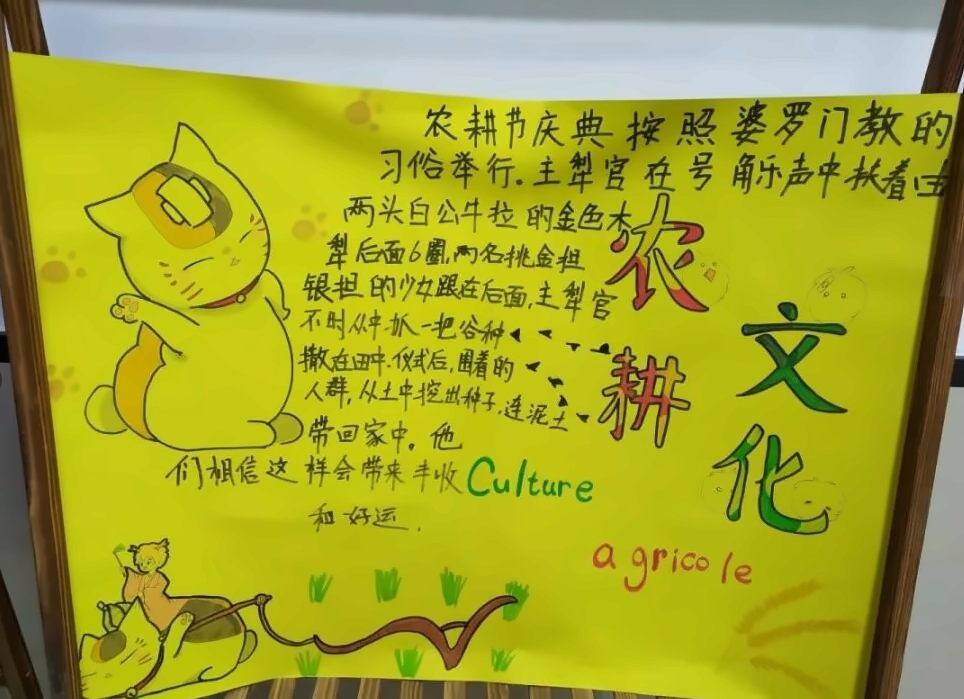 农耕节庆典按照婆罗门教的
习俗举行.主犁官在号角乐声中扶着由
两头白公牛拉的金色木
犁后面6圈,两名挑金担
银担的少女跟在后面,主犁官
不时从中抓一把谷种
撒在田中.仪式后,围着的
人群,从土中挖出种子,连泥土
带回家中。他
们相信这样会带来丰收
和好运.
农耕
文化
Culture
agricole